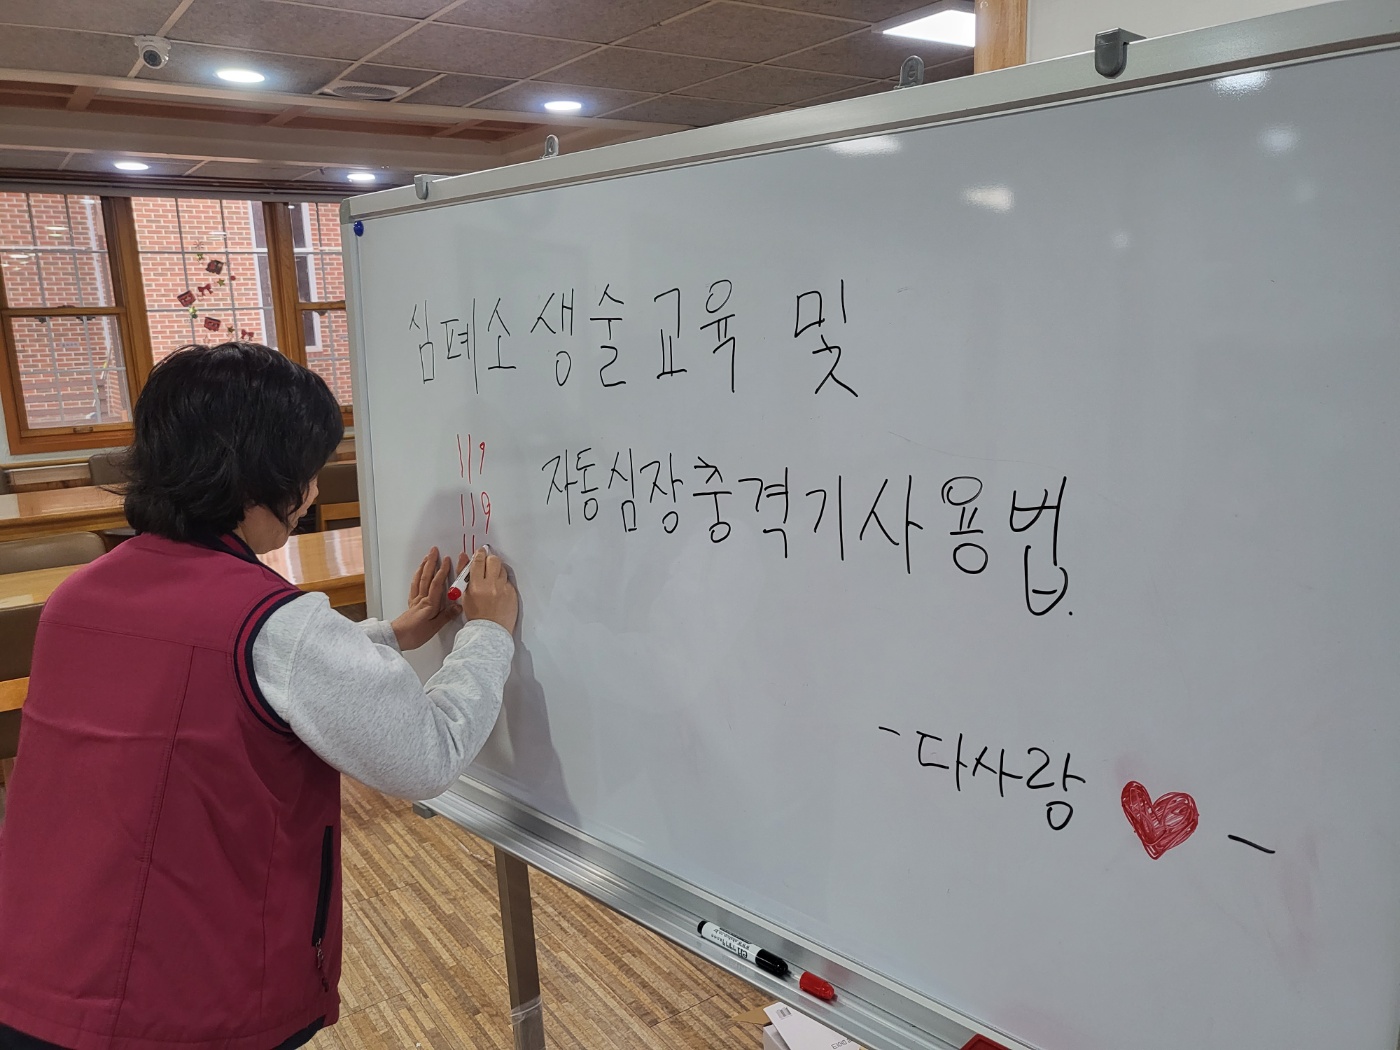 심폐소생술교육 및
119
119
11
자동심장충격기사용법.
- 다사랑 ♥ -